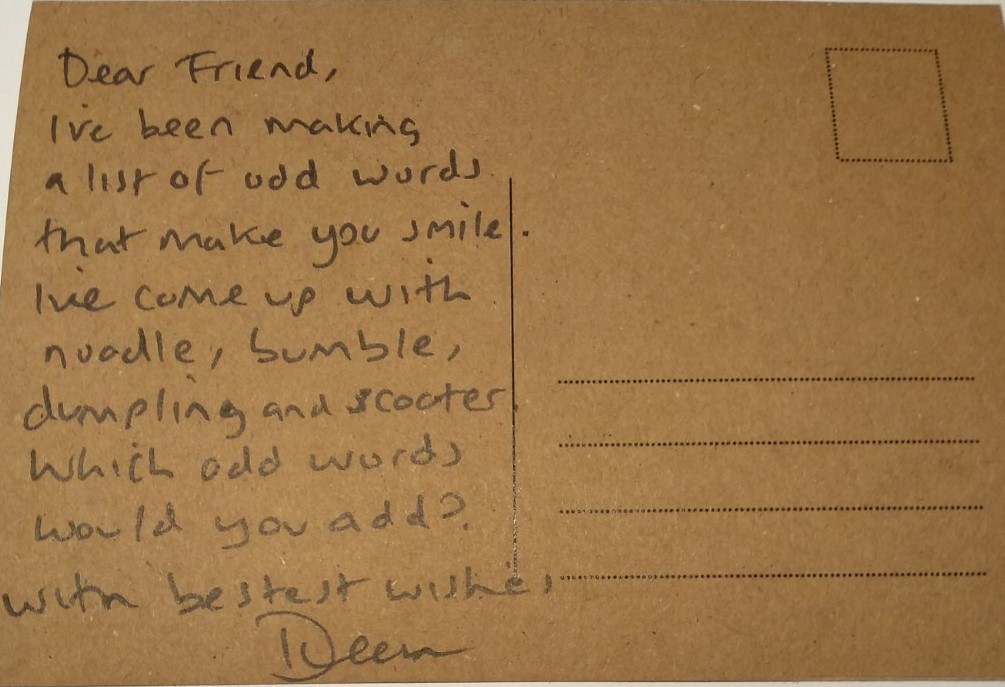 Dear Friend,
I've been making
a list of odd words
that make you smile.
I've come up with
noodle, bumble,
dumpling and scooter.
Which odd words
would you add?
with bestest wishes